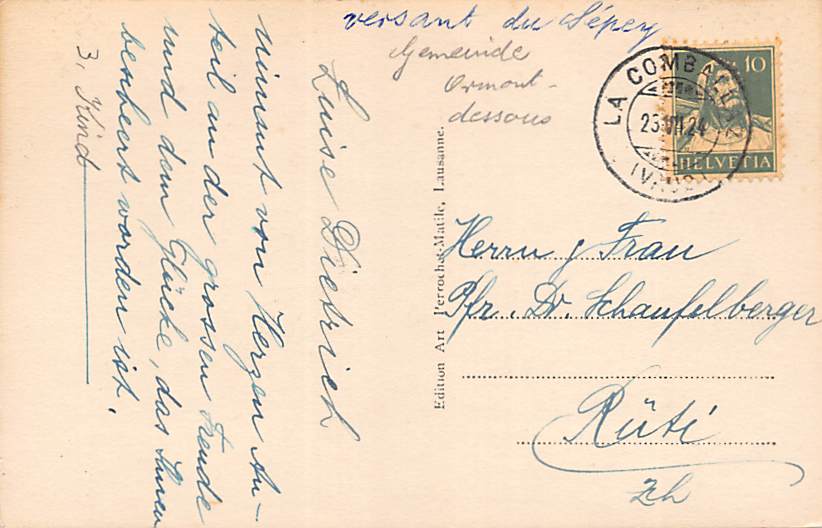 versant du Sépey
Gemeinde
Ormont-
dessous
LA COMBALLAZ
23.VII.24
(VAUD)
10
HELVETIA
Luise Dietrich
nimmt von Herzen An-
teil an der grossen Freude
und dem Glücke, das Ihnen
beschert worden ist.
3. Kind
Edition Art Perrochet-Matile, Lausanne.
Herrn & Frau
Pfr. Dr. Schaufelberger
Rüti
Zh